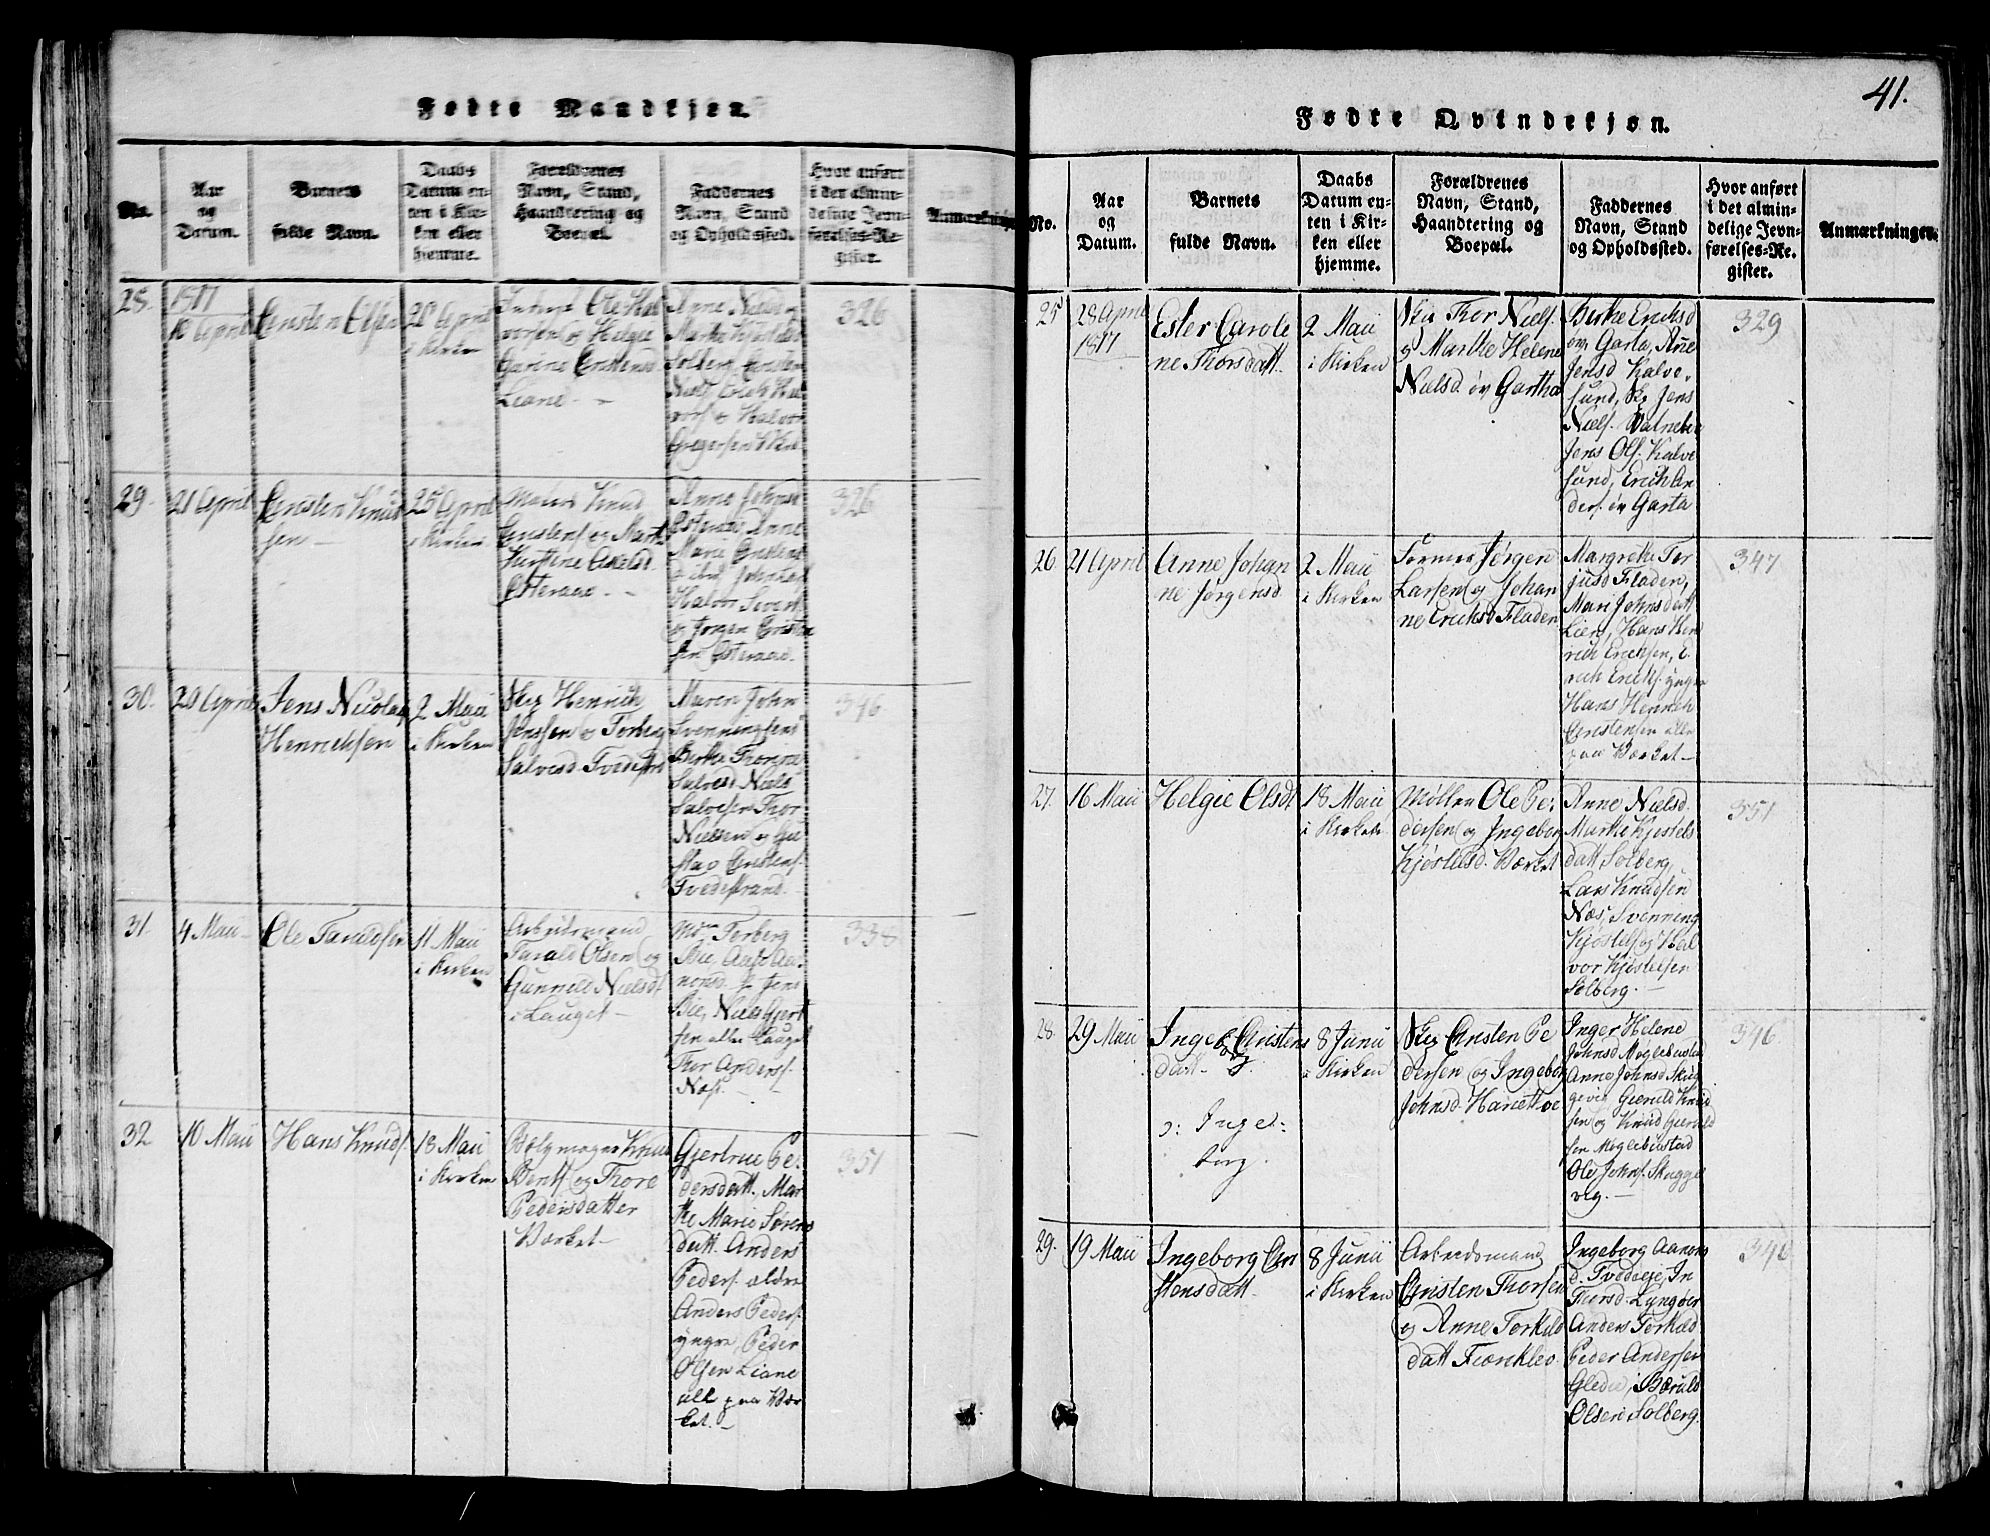 Fødte Mandkjøn.
No.
Aar
og
Datum.
Barnets
fulde Navn.
Daabs
Datum en-
ten i Kir-
ken eller
hjemme.
Forældrenes
Navn, Stand,
Haandtering og
Boepæl.
Faddernes
Navn, Stand
og Opholdssted.
Hvor anført
i det almin-
delige Jevn-
førelses-Re-
gister.
Anmærkninger
28.
1817
18 April
Cristen Olsen
20 April
i Kirken
Ole Hal
vorsen og Helgie
Cristensd
Liane
Anne Nielsd
Marthe
Solberg, Cristen
Niels
Halvor
Gregersen
326
29.
21 April
Cristen Knud
sen
25 April
i Kirken
Knud
Cristens og Marthe
Kirstine Axelsd
Østeraae
Anne
Østeraae Anne
Marie Cristens
d ibid
Halvor Sivert
og Jørgen Cristen
sen Østeraae.
326
30.
20 April
Jens Nicolay
Henrichsen
2 Maii
i Kirken
Skip Henrich
Jenssen og Torbor
Salvesd Tvedestr
Maren John
Svenningsens
Birthe Thorine
Salvesd Niels
Salvesen Thor
Nielsen og Gu
stav Cristens.
Tvedestrand.
346
31.
4 Maii
Ole Taraldsen
11 Maii
i Kirken
Arbeidsmand
Tarald Olsen og
Gunnild Nielsd
i Lauget
Torberg
Bie, Aase Aa-
nonsd. Jens
Bie, Niels Gjert
sen alle Lauget
Thor Anders.
Næs.
338
32
10 Maii
Hans Knuds.
18 Maii
i Kirken
Bælgmager Knud
Bents og Thore
Pedersdatter
Værket
Gjertrue Pe-
dersdatt, Mar
the Marie Sørens
datt. Anders
Peders. ældre
Anders Peders.
yngre, Peder
Olsen Liane
all paa Vær
ket.
351
41.
Fødte Qvindekjøn.
No.
Aar
og
Datum.
Barnets
fulde Navn.
Daabs
Datum en-
ten i Kir-
ken eller
hjemme.
Forældrenes
Navn, Stand,
Haandtering og
Boepæl.
Faddernes
Navn, Stand
og Opholdssted.
Hvor anført
i det almin-
delige Jevn-
førelses-Re-
gister.
Anmærkninger.
25
28 April
1817
Ester Carole
ne Thorsdatt.
2 Maii
i Kirken
Skip Thor Niels.
og Marthe Helene
Nielsd. øv Gartha
Birthe Ericksd
øv Garta, Ane
Jensd Kalve-
sund, Sk. Jens
Niels.
Jens Ols. Kalve
sund, Erich An
ders. øv Garta
329
26.
21 April
Anne Johan
ne Jørgensd
2 Maii
i Kirken
Former Jørgen
Larsen og Johan
ne Ericksd Fladen
Margrethe Ter
jusd Fladen,
Mari Johnsdatt
Lien, Hans Hen
rich Erichsen, E.
rich Erichs. yngre
Hans Henrich
Cristensen alle
paa Værket
347
27.
16 Maii
Helgie Olsd
18 Maii
i Kirken
Møller Ole Pe-
dersen og Ingeborg
Kjøstelsd. Værket
Anne Nielsd.
Marthe Kjøstels
datt Solberg,
Lars Knudsen
Næs, Svenning
Kjøstels og Hal
vor Kjøstelsen
Solberg.
351
28.
29 Maii
Ingeborg Cristens
datt
ɔ: Inge-
borg.
8 Junii
i Kirken
Skip Cristen Pe
dersen og Ingebor
Johnsd. Hanetoe
Inger Helene
Johnsd Møglebustad
Anne Johnsd Skug
gevig Gieruld Knud
sen og Knud Gieruld
sen Møglebustad
Ole Johns. Skugge
vig.
346
29.
19 Maii
Ingeborg Cri
stensdatt
8 Junii
i Kirken
Arbeidsmand
Cristen Thorsen
og Anne Torkild
datt Fiærekleo
Ingeborg Aanons
d. Tvedeeie, In
Thorsd Lyngøer
Anders Torkeld
Peder Andersen
Gleda,
Olsen Solberg.
346